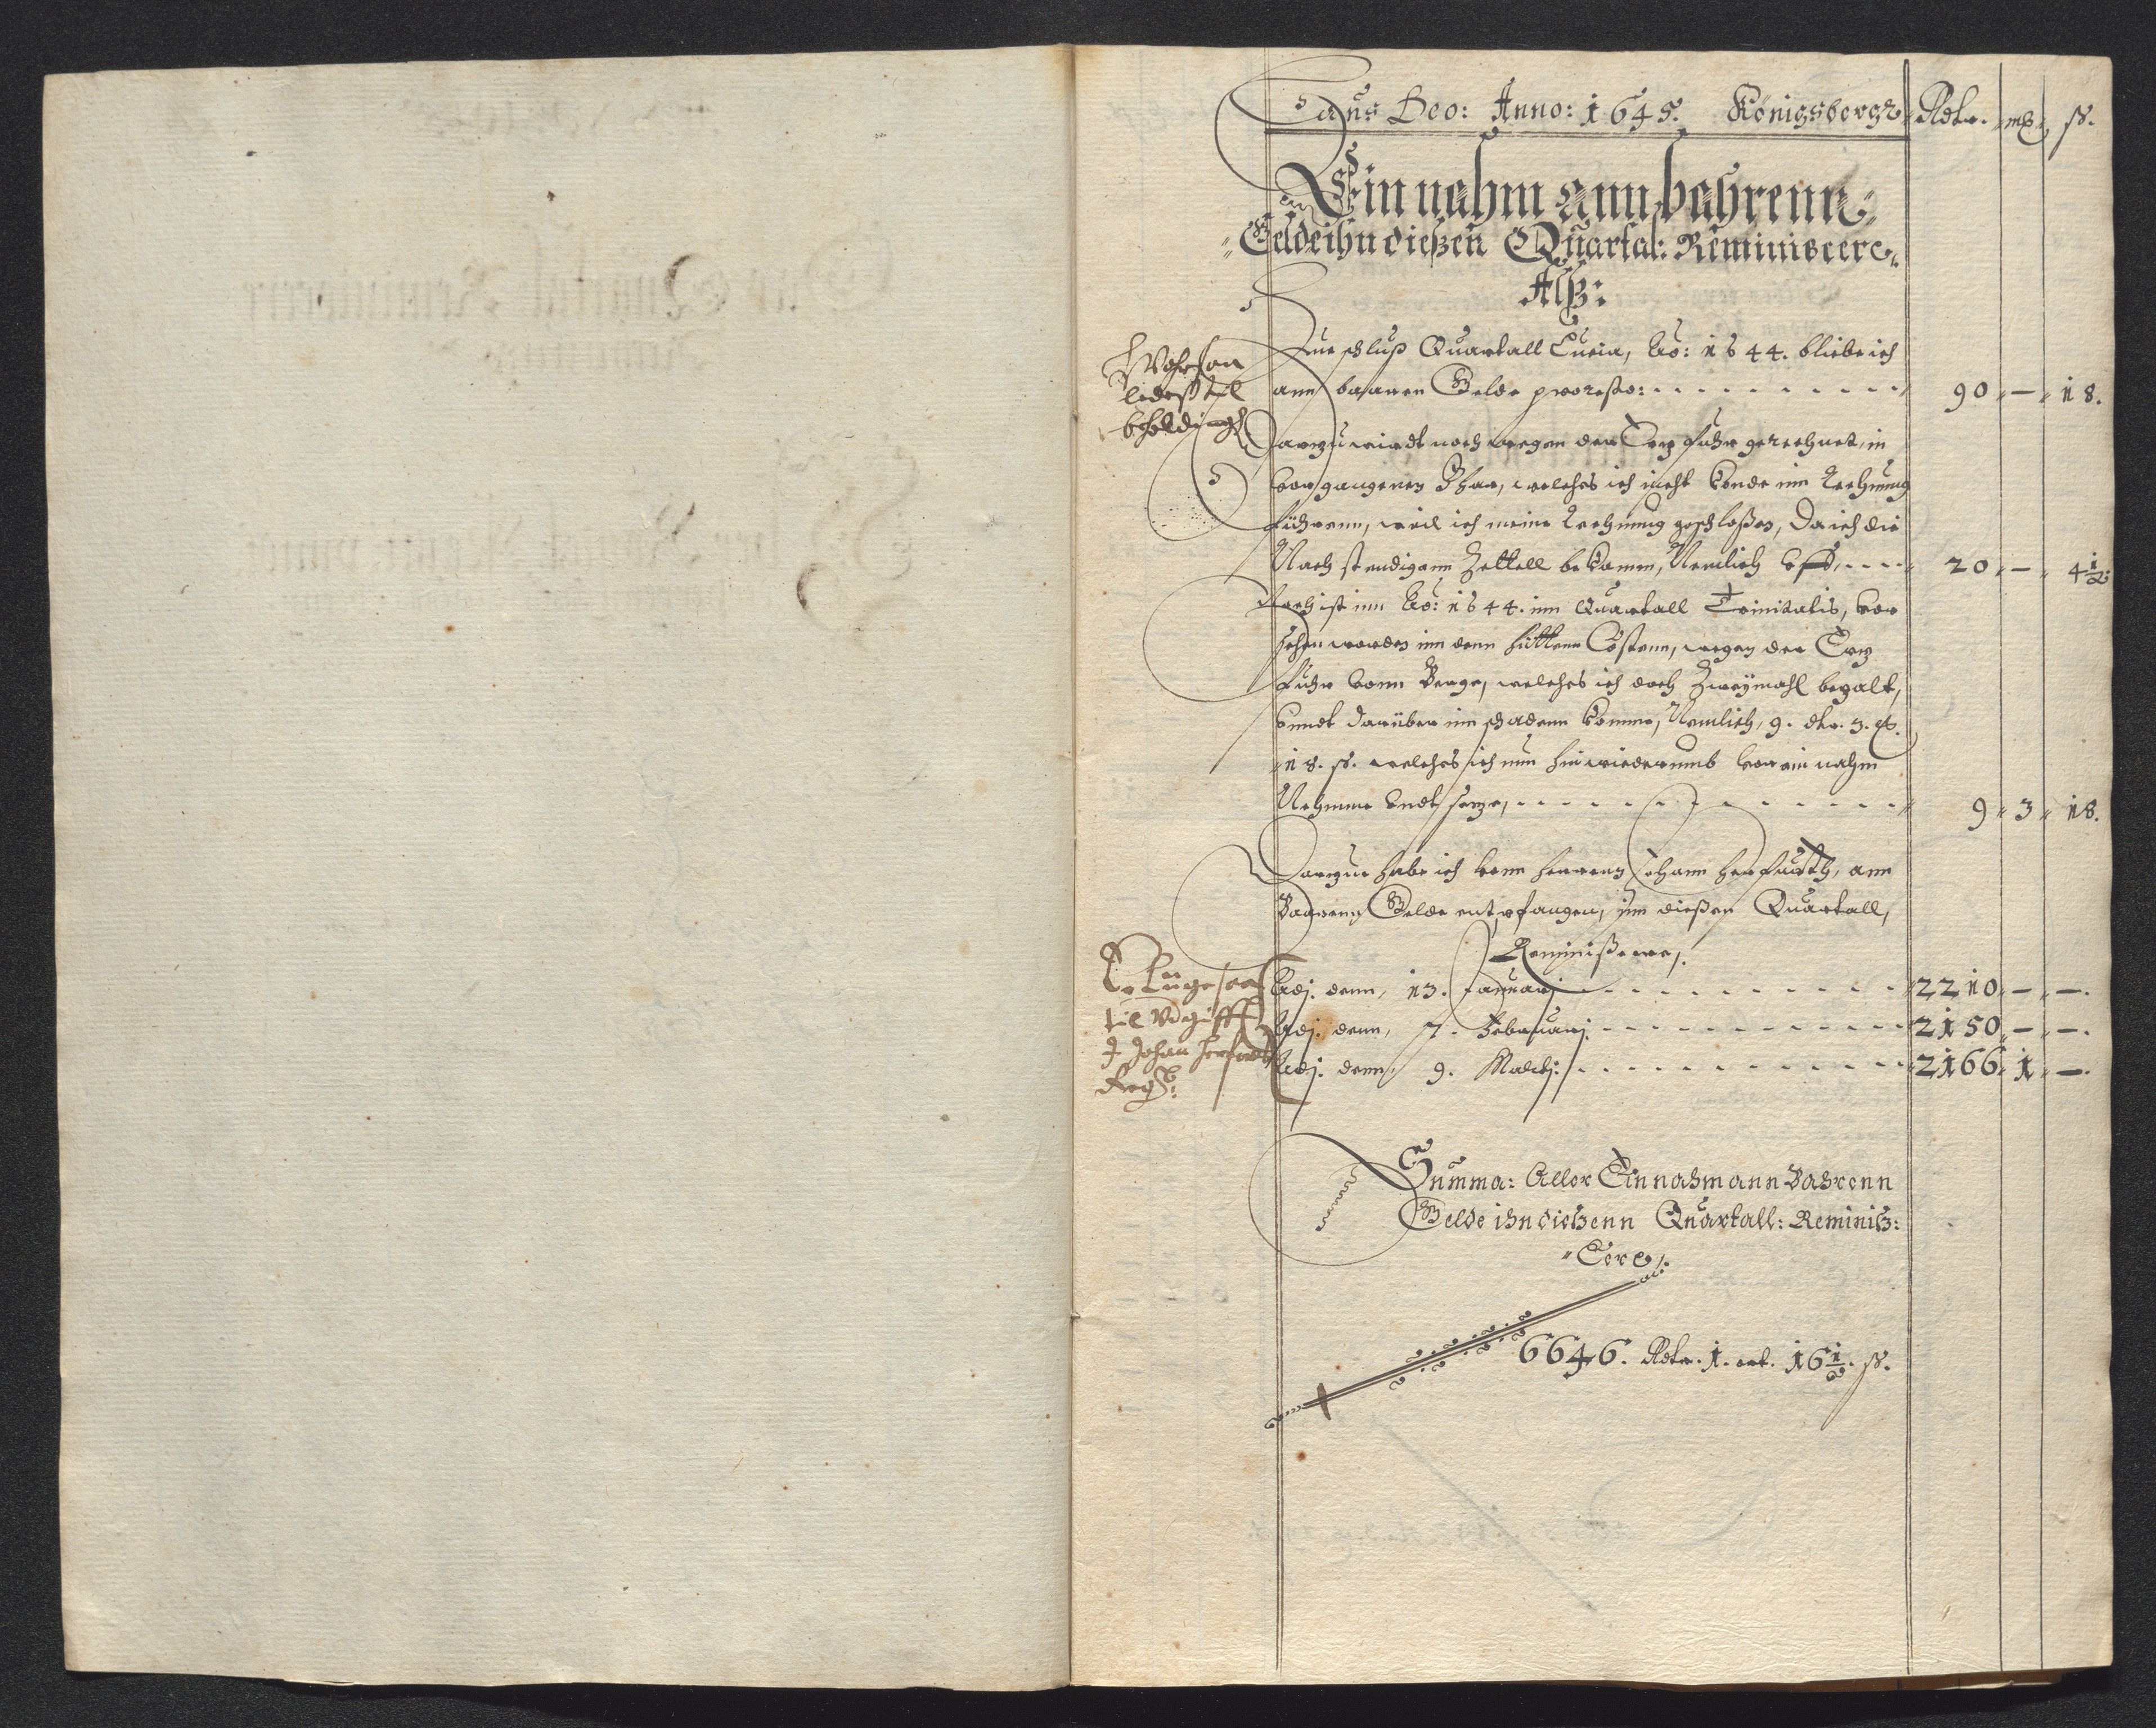 Laus Deo: Anno: 1645. Königsbergk Rdtr. mß. ß.
Einnahm ann bahrenn
Gelde ihn dießen Quartal: Reminiscere
Alß:
Zue schluß Quartall Lucia, Ao: 1644. bliebe ich
ann baaren Gelde pro resto: 90 — 18.
Darzu wirdt noch wegen der Ertz fuhr gerechnet, in
vorgangenen Jhar, welches ich nicht konde inn Rechnung
führenn, weil ich meine Rechnung geschloßen, da ich die
Nachstendigenn Zettell bekamm, Nemlich 20 — 4 1/2
Noch ist inn Ao: 1644. inn Quartall Trinitatis, ver
sehen worden inn denn hüttenn Costenn, wegen der Ertz
fuhr vonn Berge, welches ich doch Zweymahl bezalt,
unndt darüber inn schadenn komme, Nemlich, 9. dtr. 3. ort.
18. ß. welches ich nun hinwiederumb vor einnahm
Nehmme undt setze, 9 3 18.
Darzue habe ich vonn herrenn Johann herfurth, ann
Baarenn Gelde entpfangen, inn dießen Quartall,
Reminißcere,
Adj. denn, 13. Januarj 2210 — —
Adj. denn, 7. Februarj. 2150 — —
Adj. denn, 9. Martij: 2166 1 —
til Udgifft
J Johan herfordt
Regß:
Summa: Aller Einnahm ann Bahrenn
Gelde ihn dießenn Quartall: Reminiß:
Cere
6646. Rdtr. 1. ort. 16 1/2. ß.